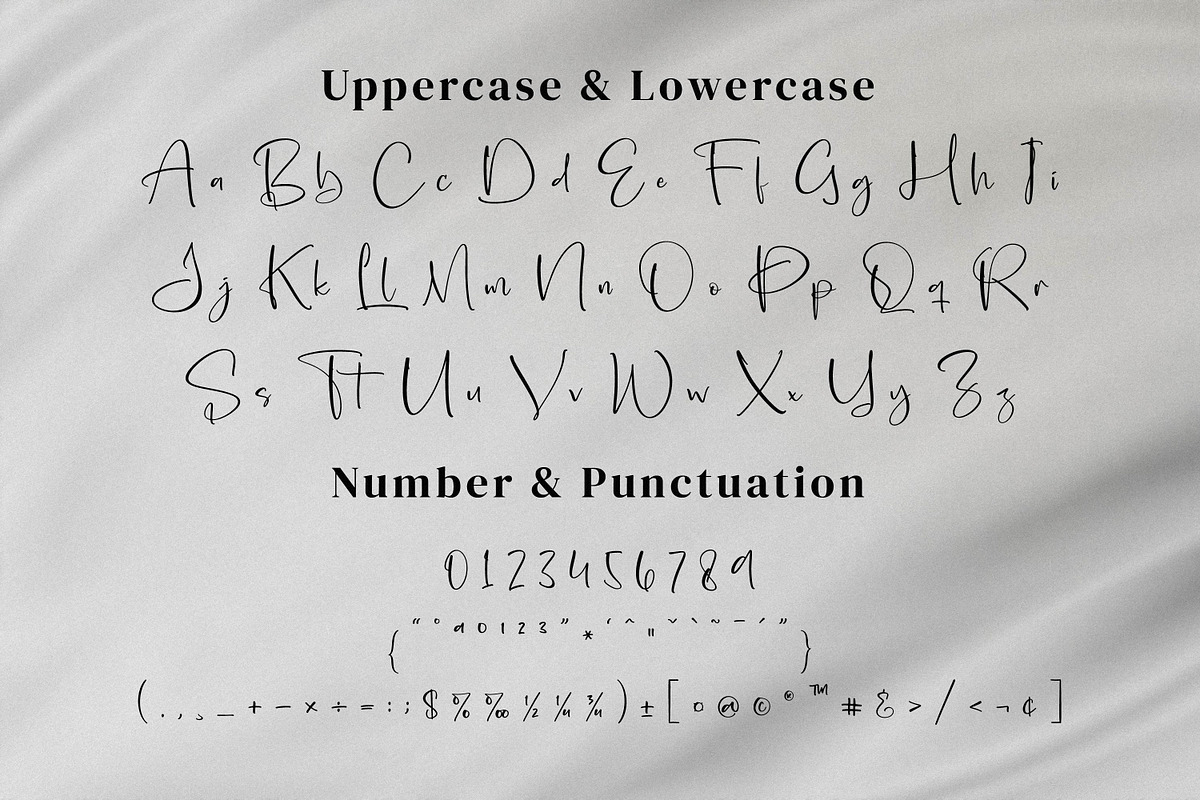 Uppercase & Lowercase
Aa Bb Cc Dd Ee Ff Gg Hh Ii
Jj Kk Ll Mm Nn Oo Pp Qq Rr
Ss Tt Uu Vv Ww Xx Yy Zz
Number & Punctuation
0123456789
{ “ ° a 0 1 2 3 ” * ‘ ^ " ˇ ` ~ – ´ ’ ” }
( . , ¸ _ + − × ÷ = : ; $ % ‰ ½ ¼ ¾ ) ± [ º @ © ® ™ # & > / < ¬ ¢ ]